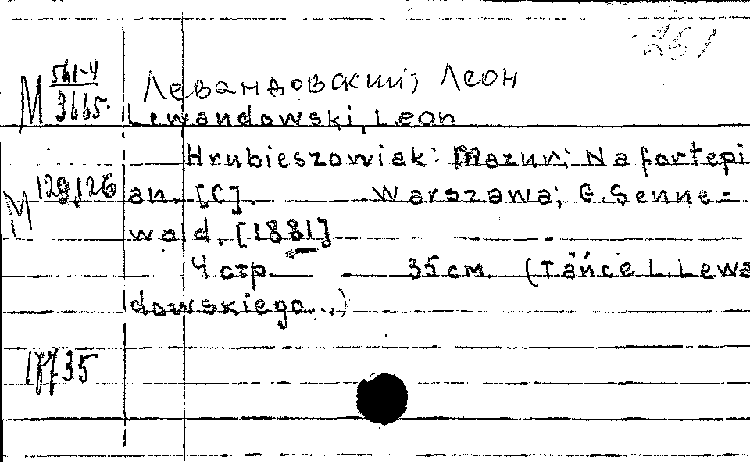 261
М 561-4/3665. Левандовский, Леон
Lewandowski, Leon
Hrubieszowiak: Mazur; Na fortepi
М 129,126 an. [C]. Warszawa; G. Senne=
wald, [1881]
4 стр. 35 см. (Tańce L. Lewa
dowskiego...)
17735